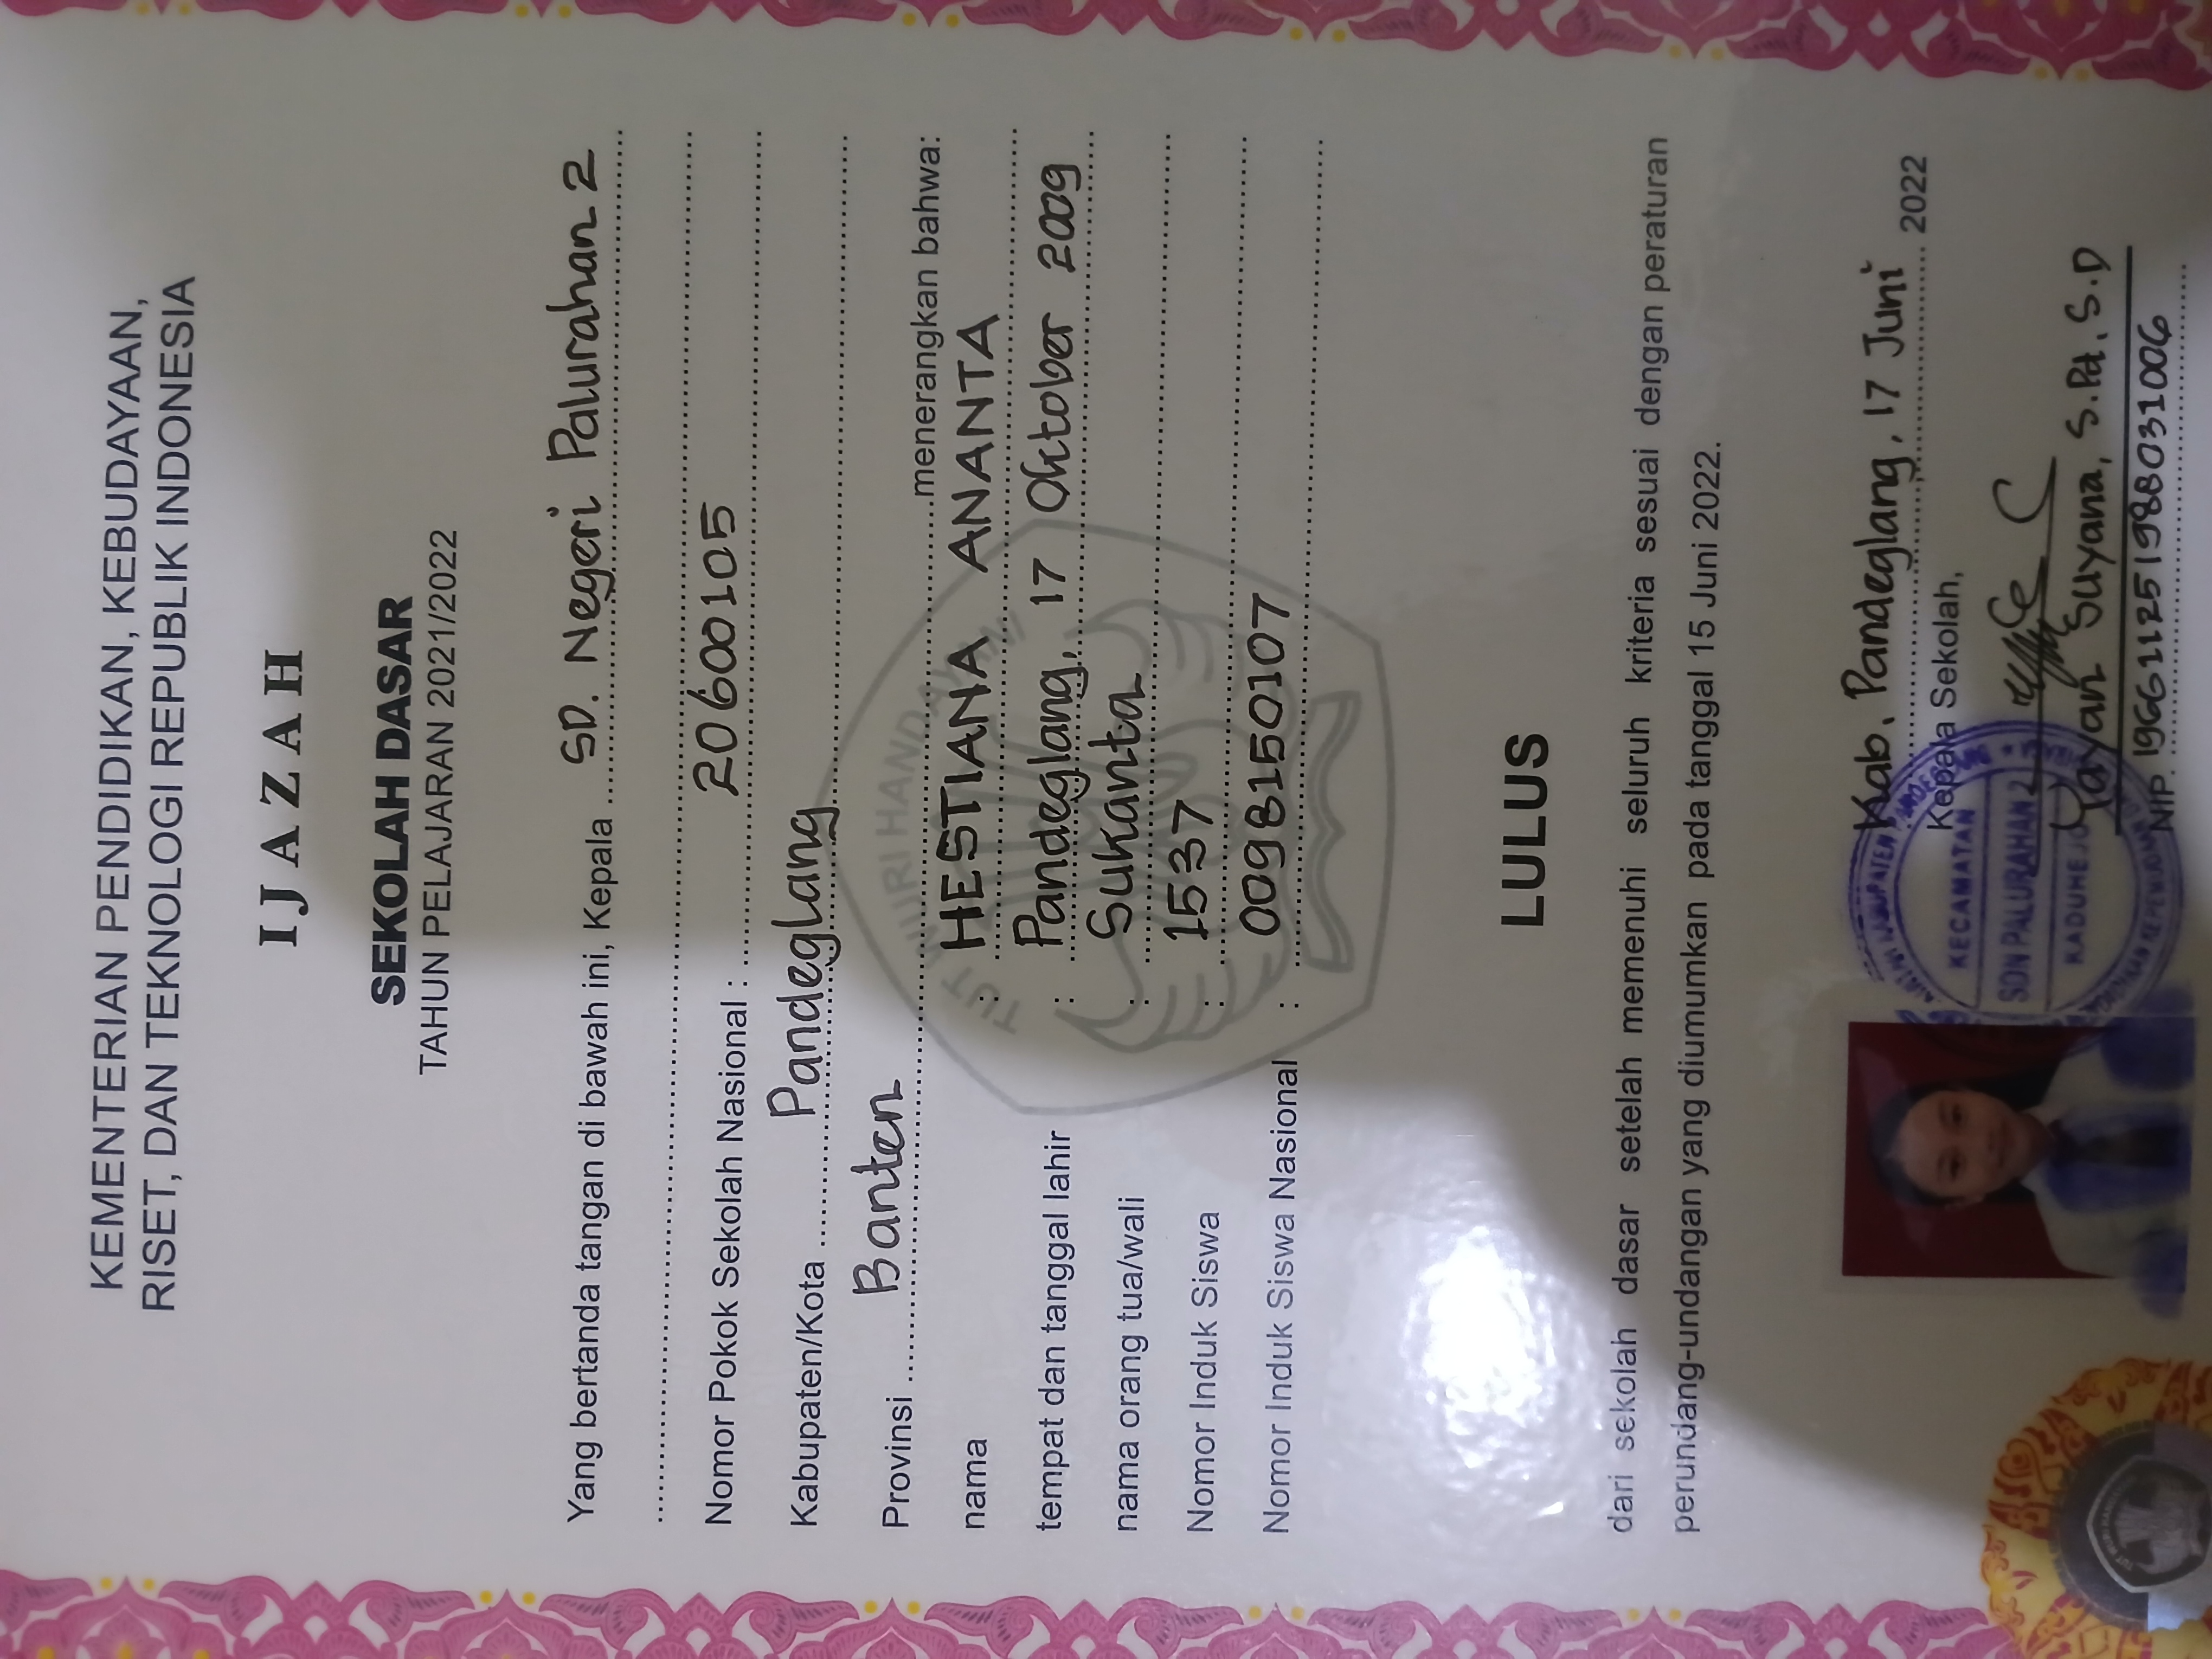 KEMENTERIAN PENDIDIKAN, KEBUDAYAAN,
RISET, DAN TEKNOLOGI REPUBLIK INDONESIA
IJAZAH
SEKOLAH DASAR
TAHUN PELAJARAN 2021/2022
Yang bertanda tangan di bawah ini, Kepala SD. Negeri Palurahan 2
Nomor Pokok Sekolah Nasional : 20600105
Kabupaten/Kota Pandeglang
Provinsi Banten menerangkan bahwa:
nama : HESTIANA ANANTA
tempat dan tanggal lahir : Pandeglang, 17 Oktober 2009
nama orang tua/wali : Sukanta
Nomor Induk Siswa : 1537
Nomor Induk Siswa Nasional : 0098150107
TUT WURI HANDAYANI
LULUS
dari sekolah dasar setelah memenuhi seluruh kriteria sesuai dengan peraturan
perundang-undangan yang diumumkan pada tanggal 15 Juni 2022.
Kab. Pandeglang, 17 Juni 2022
Kepala Sekolah,
KABUPATEN PANDEGLANG
KECAMATAN
SDN PALURAHAN 2
KADUHEJO
Yayan Suyana, S.Pd, S.D
NIP. 196611251988031006
TUT WURI HANDAYANI